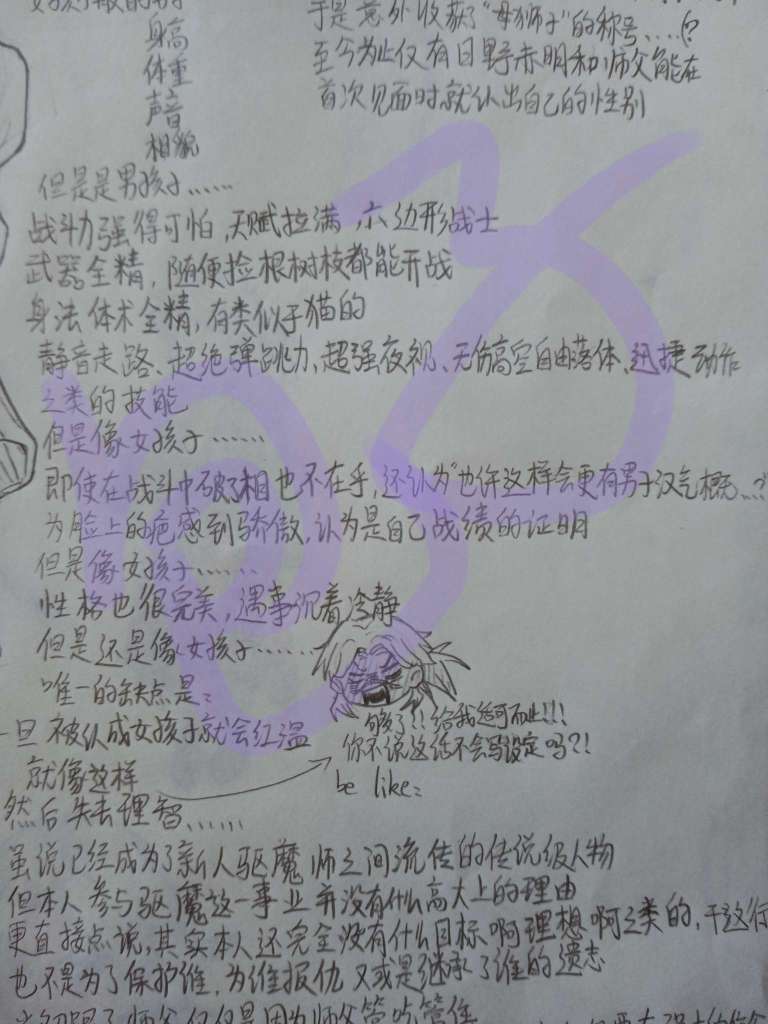 于是意外收获了“母狮子”的称号……(?
身高
至今为止仅有日野赤明和师父能在
体重
首次见面时就认出自己的性别
声音
相貌
但是是男孩子……
战斗力强得可怕,天赋拉满,六边形战士
武器全精,随便捡根树枝都能开战
身法体术全精,有类似于猫的
静音走路、超绝弹跳力、超强夜视、无伤高空自由落体、迅捷动作
之类的技能
但是像女孩子……
即使在战斗中破了相也不在乎,还认为“也许这样会更有男子汉气概……?”
为脸上的疤感到骄傲,认为是自己战绩的证明
但是像女孩子……
性格也很完美,遇事沉着冷静
但是还是像女孩子……
唯一的缺点是:
一旦被认成女孩子就会红温
够了!!给我适可而止!!!
你不说这话不会写设定吗?!
就像这样
be like:
然后失去理智……
虽说已经成为了新人驱魔师之间流传的传说级人物
但本人参与驱魔这一事业并没有什么高大上的理由
更直接点说,其实本人还完全没有什么目标啊理想啊之类的,干这行
也不是为了保护谁,为谁报仇又或是继承了谁的遗志